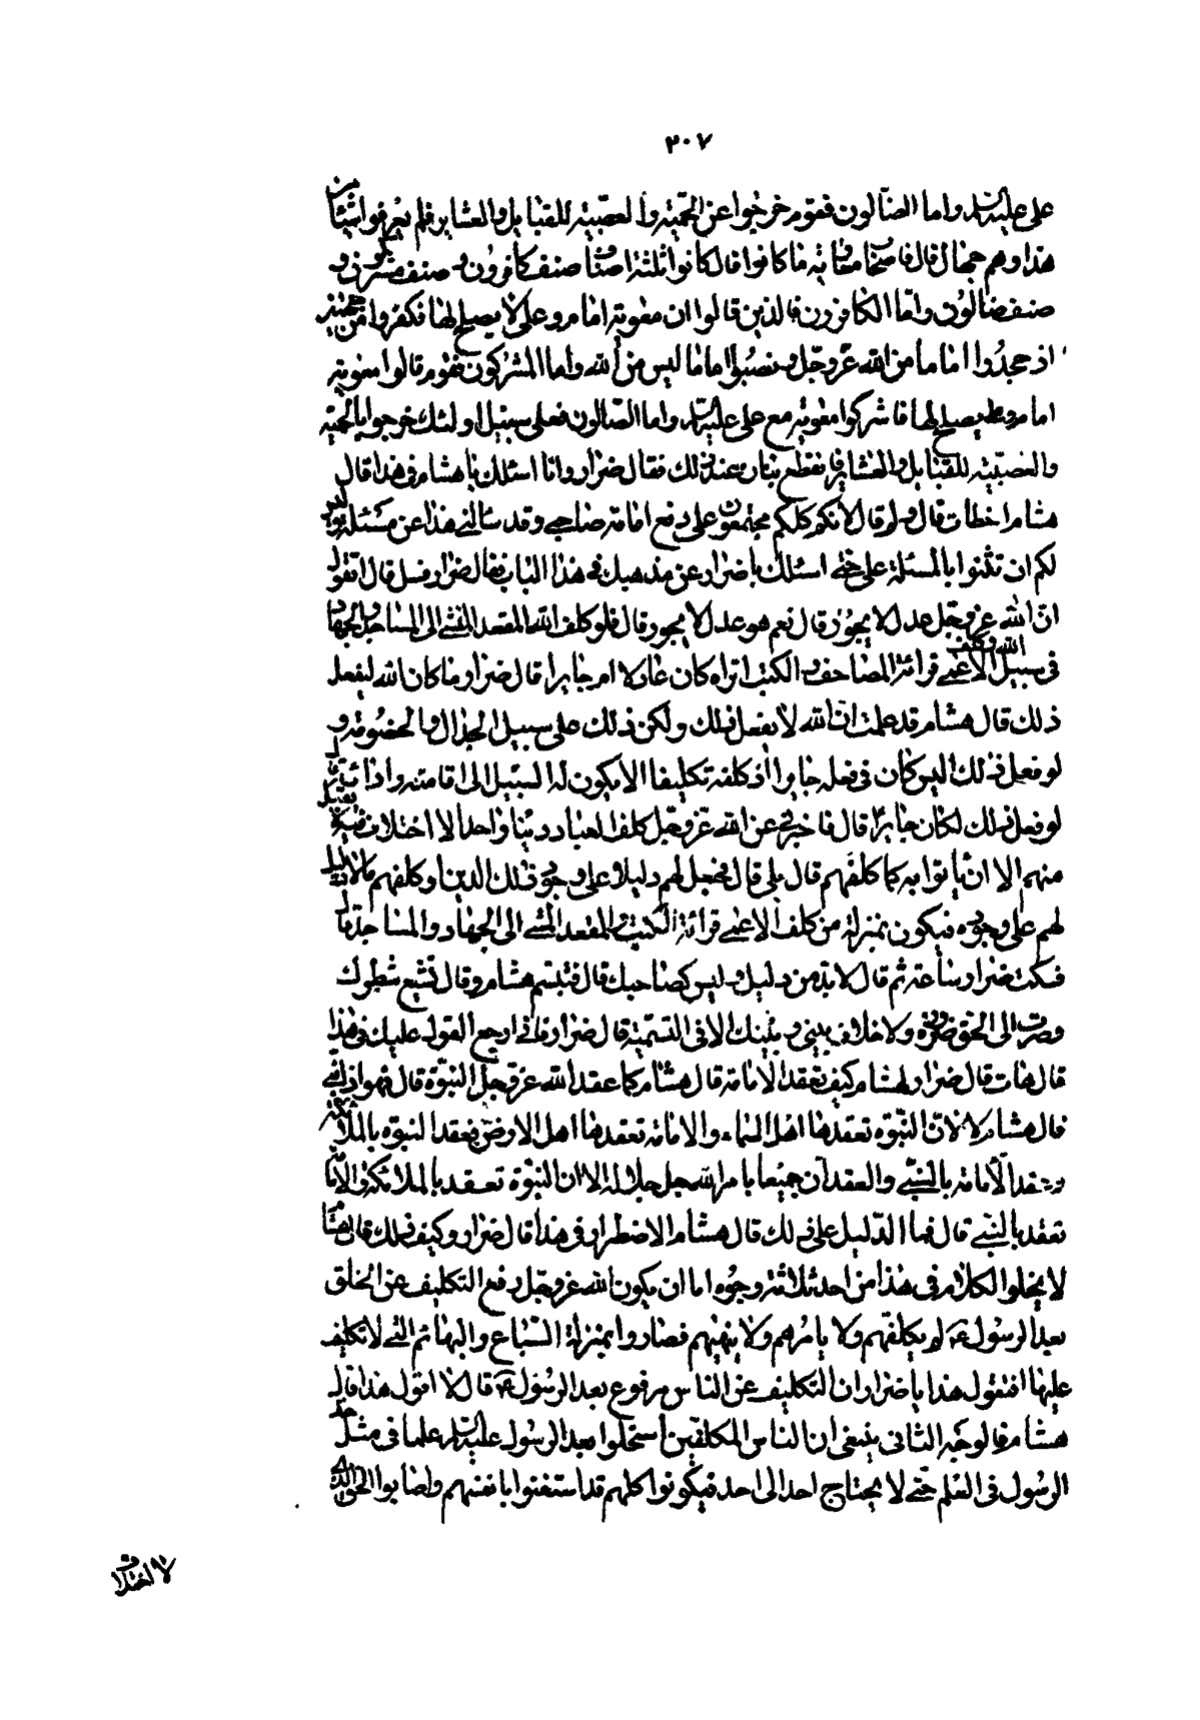 ٣٠٧
على عليه السلام واما الضالون فقوم خرجوا عن الحمية والعصبية للقبايل والعشاير فلم يعرفوا شيئا من
هذا وهم جهال قال فاصحاب معوية ما كانوا قال كانوا ثلثة اصناف صنف كافرون وصنف مشركون و
صنف ضالون واما الكافرون فالذين قالوا ان معوية امام وعلى لا يصلح لها فكفروا من جهتين
اذ جحدوا اماما من الله عز وجل ونصبوا اماما ليس من الله واما المشركون فقوم قالوا معوية
امام وعلى يصلح لها فاشركوا معوية مع على عليه السلام واما الضالون فعلى سبيل اولئك خرجوا بالحمية
والعصبية للقبايل والعشاير فانقطع بنان عند ذلك فقال ضرار وانا اسئلك يا هشام فى هذا قال
هشام اخطات قال ولم قال لانكم كلكم مجتمعون على دفع امامة صاحبى وقد سئالنى هذا عن مسئلة وليس
لكم ان تثنوا بالمسئلة على حتى اسئلك يا ضرار عن مذهبك فى هذا الباب فقال ضرار فسل قال اتقول
ان الله عز وجل عدل لا يجور قال نعم هو عدل لا يجور قال فلو كلف الله المقعد المشى الى المساجد والجهاد
فى سبيل الله وكلف الاعمى قرائة المصاحف والكتب اتراه كان عادلا ام جايرا قال ضرار وما كان الله ليفعل
ذلك قال هشام قد علمت ان الله لا يفعل ذلك ولكن ذلك على سبيل الجدال والخصومة و
لو فعل ذلك اليس كان فى فعله جايرا اذ كلفه تكليفا لا يكون له السبيل الى اقامته وادائه قال
لو فعل ذلك لكان جايرا قال فاخبرنى عن الله عز وجل كلف العباد دينا واحدا لا اختلاف فيه لا يقبل
منهم الا ان ياتوا به كما كلفهم قال بلى قال فجعل لهم دليلا على وجود ذلك الدين او كلفهم ما لا دليل
لهم على وجوده فيكون بمنزلة من كلف الاعمى قرائة الكتب والمقعد المشى الى الجهاد والمساجد قال
فسكت ضرار ساعة ثم قال لا بد من دليل وليس كصاحبك قال فتبسم هشام وقال تشيع شطرك
وصرت الى الحق ضرورة ولا خلاف بينى وبينك الا فى التسمية قال ضرار فانى ارجع القول عليك فى هذا
قال هات قال ضرار لهشام كيف تعقد الامامة قال هشام كما عقد الله عز وجل النبوة قال فهو اذا نبى
قال هشام لا لان النبوة تعقدها اهل السماء والامامة تعقدها اهل الارض فعقد النبوة بالملائكة
وعقد الامامة بالنبى والعقدان جميعا بامر الله جل جلاله الا ان النبوة تعقد بالملائكة والامامة
تعقد بالنبى قال فما الدليل على ذلك قال هشام الاضطرار فى هذا قال ضرار وكيف ذلك قال هشام
لا يخلوا الكلام فى هذا من احد ثلاثة وجوه اما ان يكون الله عز وجل رفع التكليف عن الخلق
بعد الرسول ص لم يكلفهم ولا يامرهم ولا ينهيهم فصاروا بمنزلة السباع والبهائم التى لا تكليف
عليها افتقول هذا يا ضرار ان التكليف عن الناس مرفوع بعد الرسول ص قال لا اقول هذا قال
هشام فالوجه الثانى ينبغى ان الناس المكلفين استحلوا بعد الرسول عليه السلام علما فى مثل حد
الرسول فى العلم حتى لا يحتاج احد الى احد فيكونوا كلهم قد استغنوا بانفسهم واصابوا الحق الذى
لا اختلاف